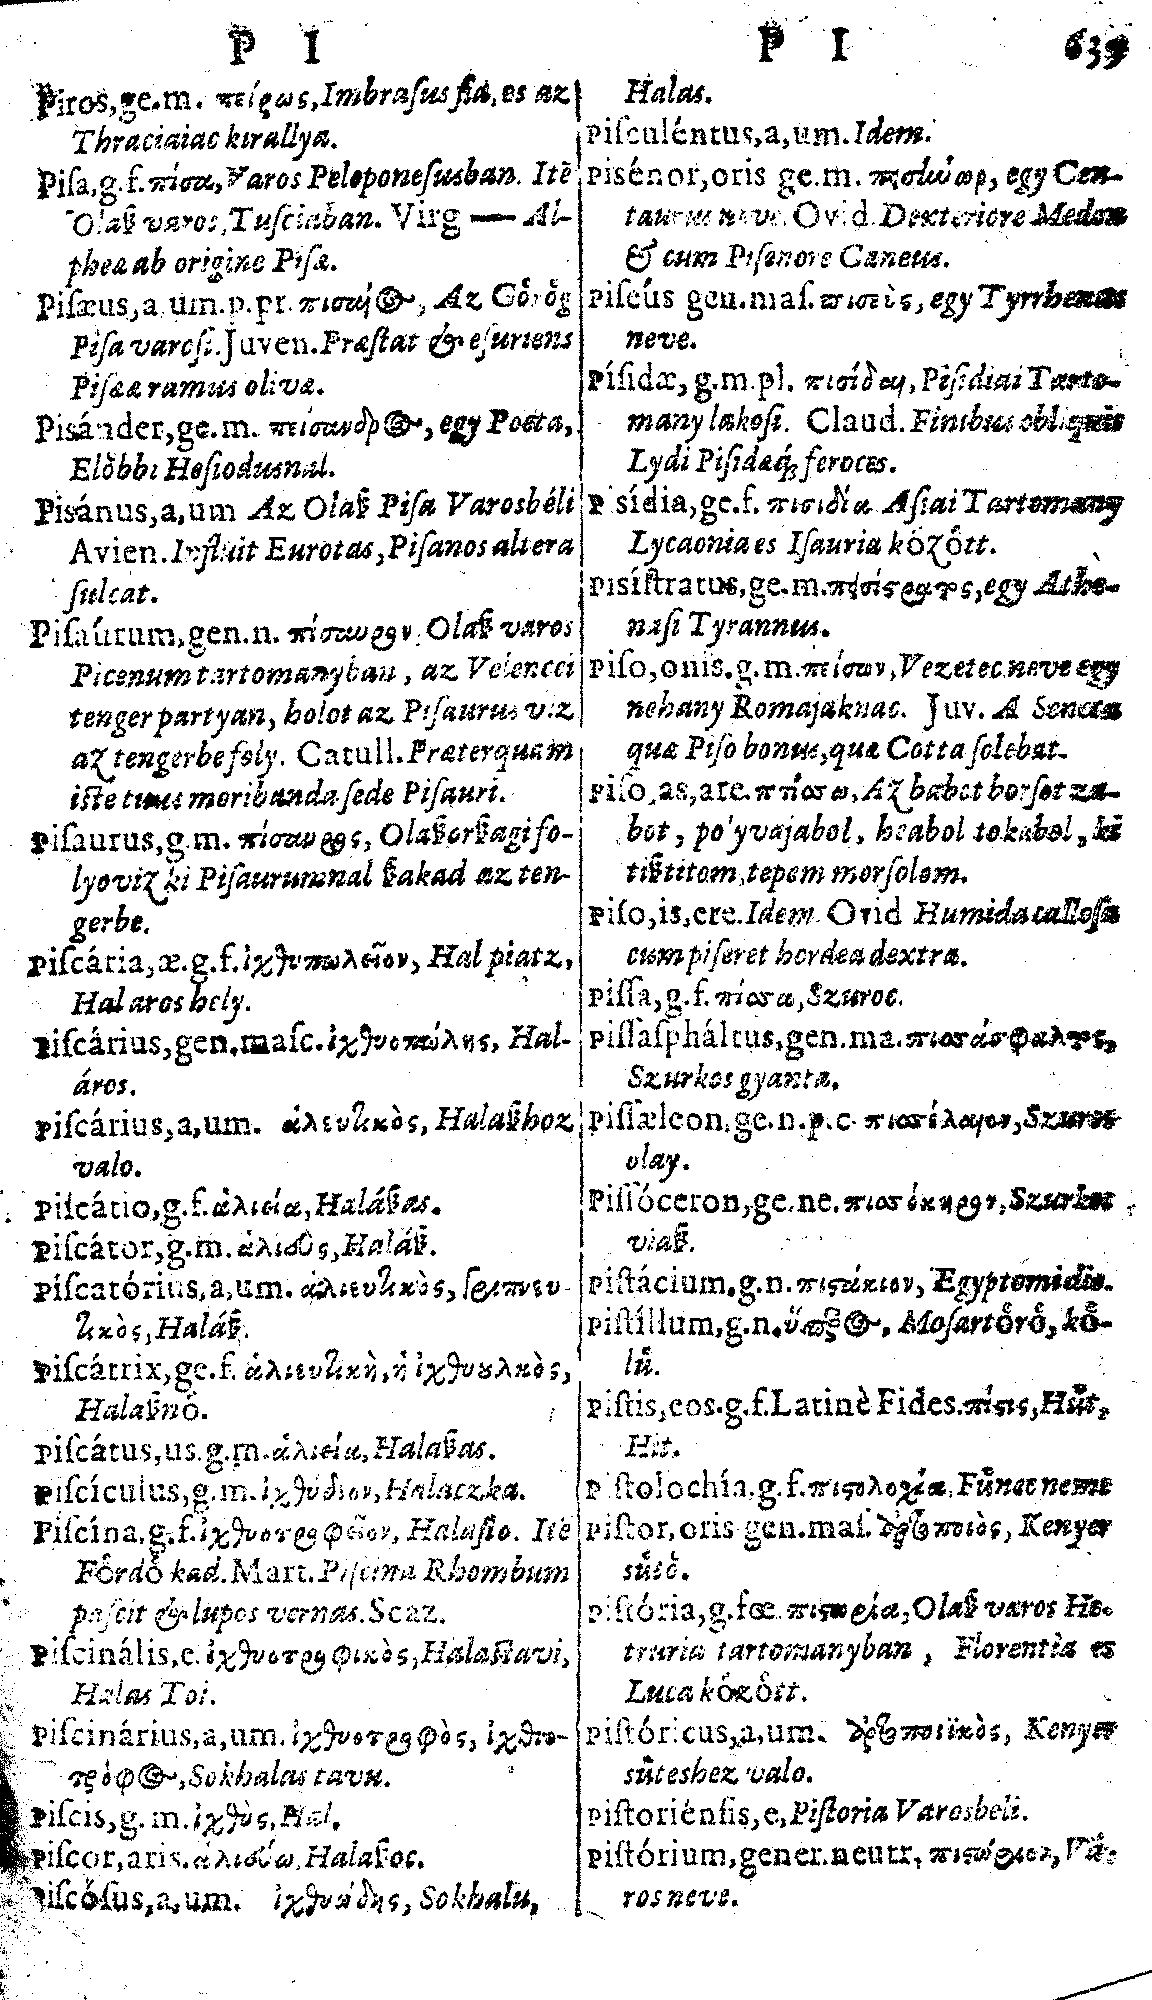 P I
Piros,ge.m. πείρως,Imbraſus fia,es az
Thraciaiac kırallya.
Piſa,g.f.πίσα,Varos Peloponeſusban. Itē
Olaß varos,Tuſciaban. Virg — Al-
phea ab origine Piſæ.
Piſæus,a,um.p.pr. Az Gỏrỏg
Piſa varoſi.Juven.Præſtat & eſuriens
Piſææ ramus olivæ.
Pisánder,ge.m. πείσανδρ, egy Poëta,
Elỏbbi Heſiodusnal.
Pisánus,a,um Az Olaß Piſa Varosbéli
Avien.Inſluit Eurotas,Piſanos altera
ſulcat.
Piſaúrum,gen.n. πίσαυρον Olaß varos
Picenum tartomanyban, az Velencei
tenger partyan, holot az Piſaurus viz
az tengerbe foly. Catull.Præterquam
iſte tuus moribunda ſede Piſauri.
Piſaurus,g.m. πίσαυρος, Olaßorßagi fo-
lyoviz ki Piſaurumnal ßakad az ten-
gerbe.
Piſcária,æ.g.f.ἰχθυπωλεῖον, Hal piatz,
Hal aros hely.
Piſcárius,gen.maſc.ἰχθυοπώλης, Hal-
áros.
Piſcárius,a,um. ἁλιευτικὸς, Halaßhoz
valo.
Piſcátio,g.f.ἁλιεία,Haláßas.
Piſcátor,g.m.ἁλιεὺς,Haláß.
Piſcatórius,a,um. ἁλιευτικὸς, γριπευ-
τικὸς,Haláß.
Piſcátrix,ge.f.ἁλιευτικὴ,ἡ ἰχθυουλκὸς,
Halaßnỏ.
Piſcátus,us.g.m.ἁλιεία,Halaßas.
Piſcículus,g.m.ἰχθύδιον,Halaczka.
Piſcína,g.f.ἰχθυοτροφεῖον, Halaſto. Itē
Fỏrdỏ kad.Mart.Piſcina Rhombum
paſcit & lupos vernas.Scaz.
Piſcinális,e.ἰχθυοτροφικὸς,Halaſtavi,
Halas Toi.
Piſcinárius,a,um.ἰχθυοτροφὸς, ἰχθυο-
τρόφ,Sokhalas tavu.
Piſcis,g.m.ἰχθὺς,Hal.
Piſcor,aris.ἁλιεύω,Halaßoc.
Piſcósus,a,um. ἰχθυώδης, Sokhalu,
P I 639
Halas.
Piſculéntus,a,um.Idem.
Pisénor,oris ge.m. πεισήνωρ, egy Cen-
taurus neve.Ovid.Dexteriore Medon
& cum Piſenore Caneus.
Piſeús gen.maſ.πισεὺς, egy Tyrrhenus
neve.
Písidæ,g.m.pl. πισίδαι,Piſidiai Tarto-
many lakoſi. Claud.Finibus obliquis
Lydi Piſidæq́; feroces.
Pisídia,ge.f.πισιδία Aſiai Tartomany
Lycaonia es Iſauria kỏzỏtt.
Pisíſtratus,ge.m.πεισίςρατος,egy Athè-
naſi Tyrannus.
Piſo,onis.g.m.πείσων,Vezetec neve egy
nehany Romajaknac. Juv. A Seneca
quæ Piſo bonus,quæ Cotta ſolebat.
Piſo,as,are.πτίσσω,Az babot borſot za-
bot, po'yvajabol, heabol tokabol, ki
tißtitom,tepem morſolom.
Piſo,is,ere.Idem Ovid Humida calloſa
cum piſeret hordea dextra.
Piſſa,g.f.πίσσα,Szuroc.
Piſſáſpháltus,gen.ma.πισσάσφαλτος,
Szurkos gyanta.
Piſſæleon,ge.n.p.c. πισσέλαιον,Szuros
olay.
Piſſóceron,ge.ne.πισσόκηρον,Szurkos
viaß.
Piſtácium,g.n.πιςάκιον,Egyptomi dio.
Piſtíllum,g.n. Moſartỏrỏ, kỏ-
lů.
Piſtis,eos.g.f.Latinè Fides.πίςις,Hůt,
Hit.
Piſtolochía,g.f.πιςολοχία,Fůnec neme
Piſtor,oris gen.maſ. ἀρτοποιὸς, Kenyer
sůtỏ.
Piſtória,g.fœ.πιςωρία,Olaß varos He-
truria tartomanyban, Florentìa es
Luca kỏzỏtt.
Piſtóricus,a,um. ἀρτοποιϊκὸς, Kenyer
sůteshez valo.
Piſtoriénſis,e,Piſtoria Varosbeli.
Piſtórium,gener.neutr, πιςώριον,Vá-
ros neve.